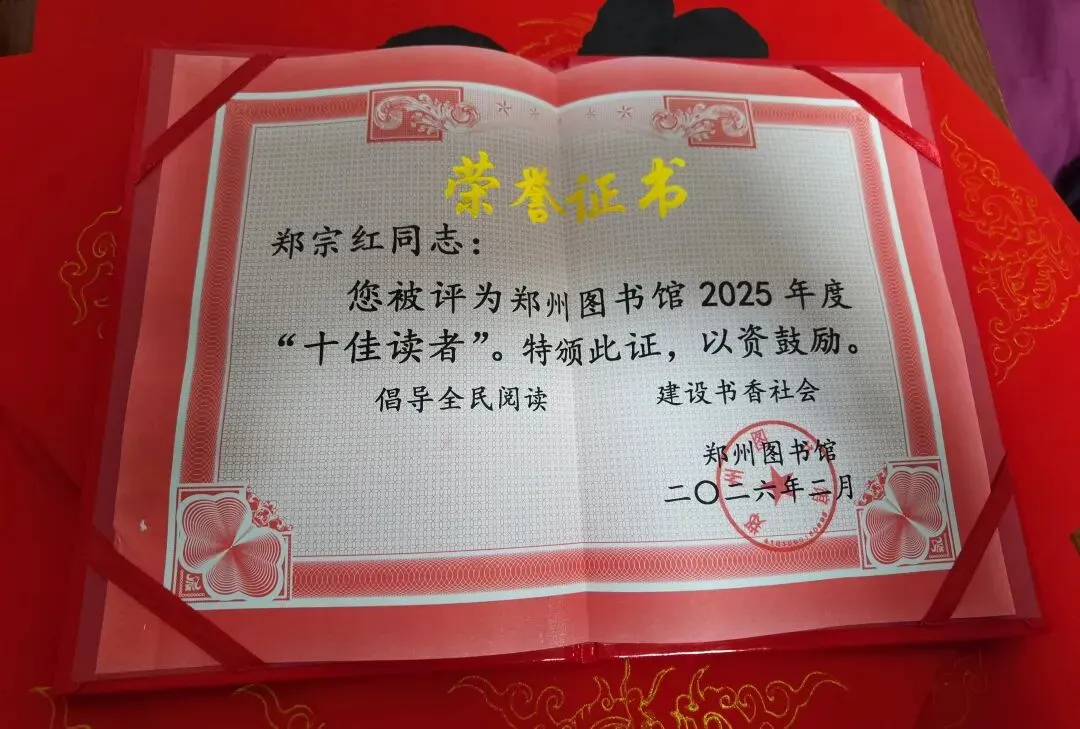 荣誉证书
郑宗红同志：
您被评为郑州图书馆 2025 年度
“十佳读者”。特颁此证，以资鼓励。
倡导全民阅读 建设书香社会
郑州图书馆
二〇二六年二月